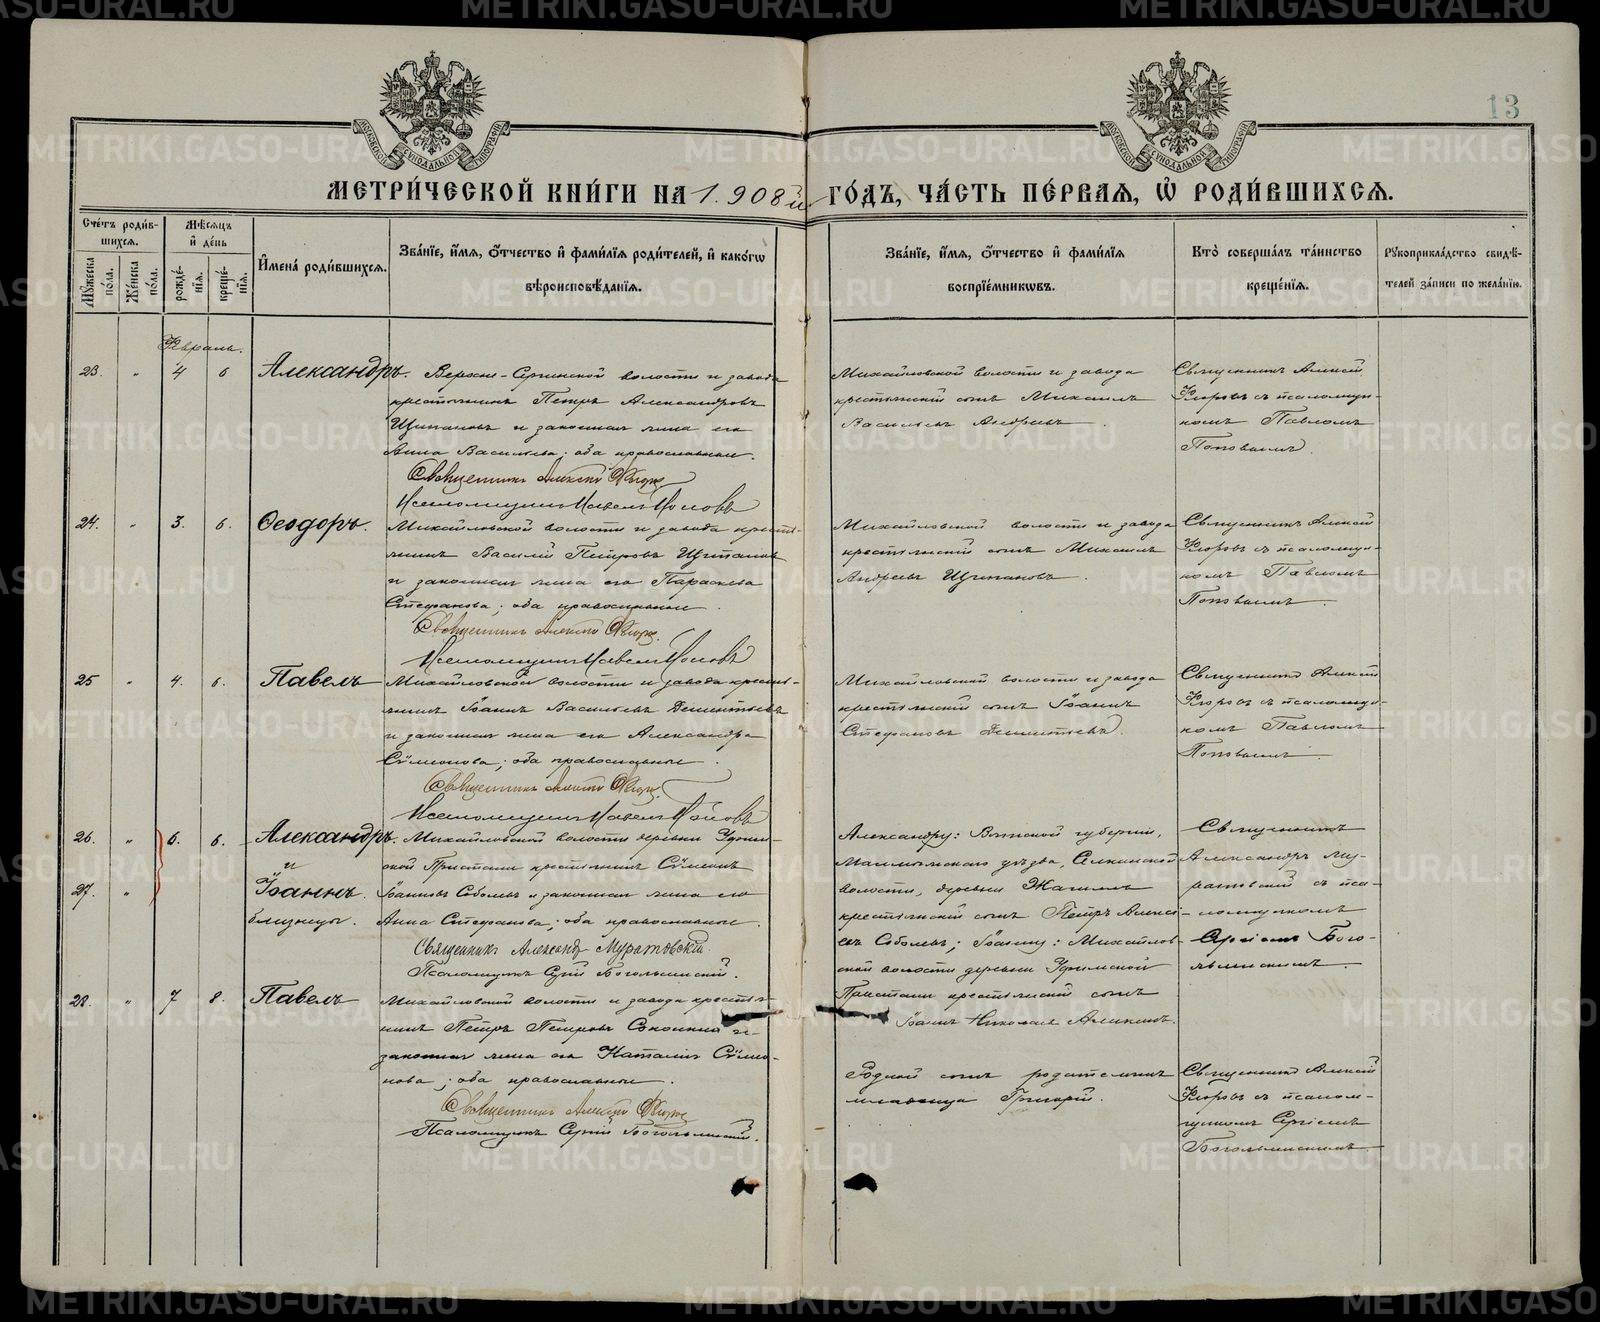 METRIKI.GASO-URAL.RU
13
МОСКОВСКОЙ СУНОДАЛЬНОЙ ТИПОГРАФІИ
МОСКОВСКОЙ СУНОДАЛЬНОЙ ТИПОГРАФІИ
МЕТРИ́ЧЕСКОЙ КНИ́ГИ НА 1908й ГО́ДЪ, ЧА́СТЬ ПЕ́РВАЯ, Ѡ҆ РОДИ́ВШИХСЯ.
Сче́тъ роди́вшихся.
Мѹ́жеска по́ла.
Же́нска по́ла.
Мѣ́сяцъ и҆ де́нь
рожде́нїя.
креще́нїя.
И҆мена̀ роди́вшихся.
Зва́нїе, и҆́мя, ѻ҆́тчество и҆ фами́лїя роди́телей, и҆ како́гѡ
вѣроисповѣ́данїя.
Зва́нїе, и҆́мя, ѻ҆́тчество и҆ фами́лїя
воспрїе́мникѡвъ.
Кто̀ соверша́лъ та́инство
креще́нїя.
Рѹкоприкла́дство свидѣ́телей за́писи по жела́нїю.
Февраль.
23. " 4 6 Александръ.
Верхне-Сергинской волости и завода
крестьянинъ Петръ Александровъ
Щипановъ и законная жена его
Анна Васильева; оба православные.
Священникъ Алексій Флоровъ
Псаломщикъ Павелъ Поповъ
Михайловской волости и завода
крестьянскій сынъ Михаилъ
Васильевъ Андреевъ.
Священникъ Алексій
Флоровъ съ псаломщи-
комъ Павломъ
Поповымъ.
24. " 3. 6. Ѳеодоръ.
Михайловской волости и завода кресть-
янинъ Василій Петровъ Щипановъ
и законная жена его Параскева
Стефанова; оба православные.
Священникъ Алексій Флоровъ
Псаломщикъ Павелъ Поповъ
Михайловской волости и завода
крестьянскій сынъ Михаилъ
Андреевъ Щипановъ.
Священникъ Алексій
Флоровъ съ псаломщи-
комъ Павломъ
Поповымъ.
25 " 4. 6. Павелъ
Михайловской волости и завода кресть-
янинъ Іоаннъ Васильевъ Дементьевъ
и законная жена его Александра
Сѵмеонова; оба православные.
Священникъ Алексій Флоровъ
Псаломщикъ Павелъ Поповъ
Михайловской волости и завода
крестьянскій сынъ Іоаннъ
Стефановъ Дементьевъ.
Священникъ Алексій
Флоровъ съ псаломщи-
комъ Павломъ
Поповымъ.
26. " 6. 6. Александръ.
и
27. " Іоаннъ.
близнецы.
Михайловской волости деревни Уфим-
ской Пристани крестьянинъ Сѵмеонъ
Іоанновъ Соболевъ и законная жена его
Анна Стефанова; оба православные.
Священникъ Александр Муратовскій
Псаломщикъ Сергій Богоявленскій.
Александру: Вятской губерніи,
Малмыжскаго уѣзда,
волости, деревни
крестьянскій сынъ Петръ Алексѣ-
евъ Соболевъ; Іоанну: Михайлов-
ской волости деревни Уфимской
Пристани крестьянскій сынъ
Іоаннъ Николаевъ
Священникъ
Александръ Му-
ратовскій съ пса-
ломщикомъ
Сергіемъ Бого-
явленскимъ.
28. " 7 8. Павелъ
Михайловской волости и завода кресть-
янинъ Петръ Петровъ и
законная жена его Наталія Сѵмео-
нова; оба православные.
Священникъ Алексій Флоровъ
Псаломщикъ Сергій Богоявленскій.
Родной сынъ родителямъ
младенца Григорій.
Священникъ Алексій
Флоровъ съ псалом-
щикомъ Сергіемъ
Богоявленскимъ.